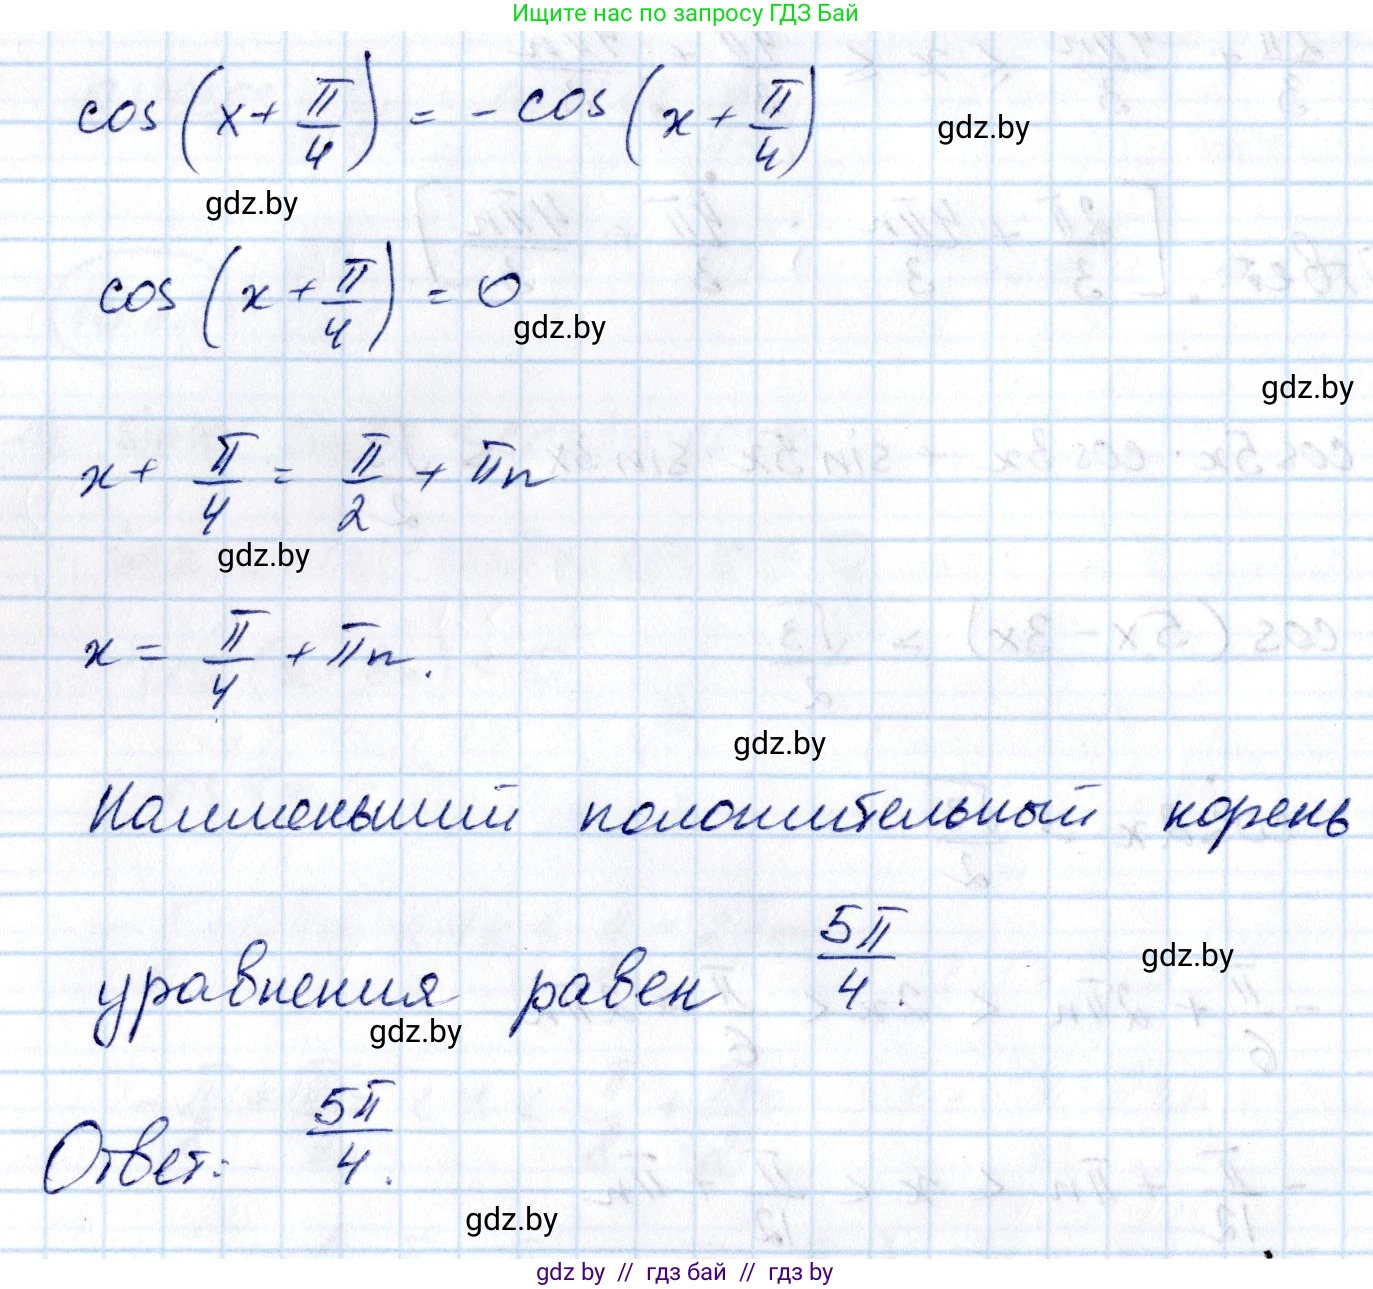 Ищите нас по запросу ГДЗ Бай
cos(x + π/4) = - cos(x + π/4)
gdz.by
gdz.by
cos(x + π/4) = 0
gdz.by
gdz.by
x + π/4 = π/2 + πn
gdz.by
x = π/4 + πn.
gdz.by
Наименьший положительный корень
уравнения равен 5π/4.
gdz.by
gdz.by
Ответ: 5π/4.
gdz.by
gdz by // гдз бай // гдз by